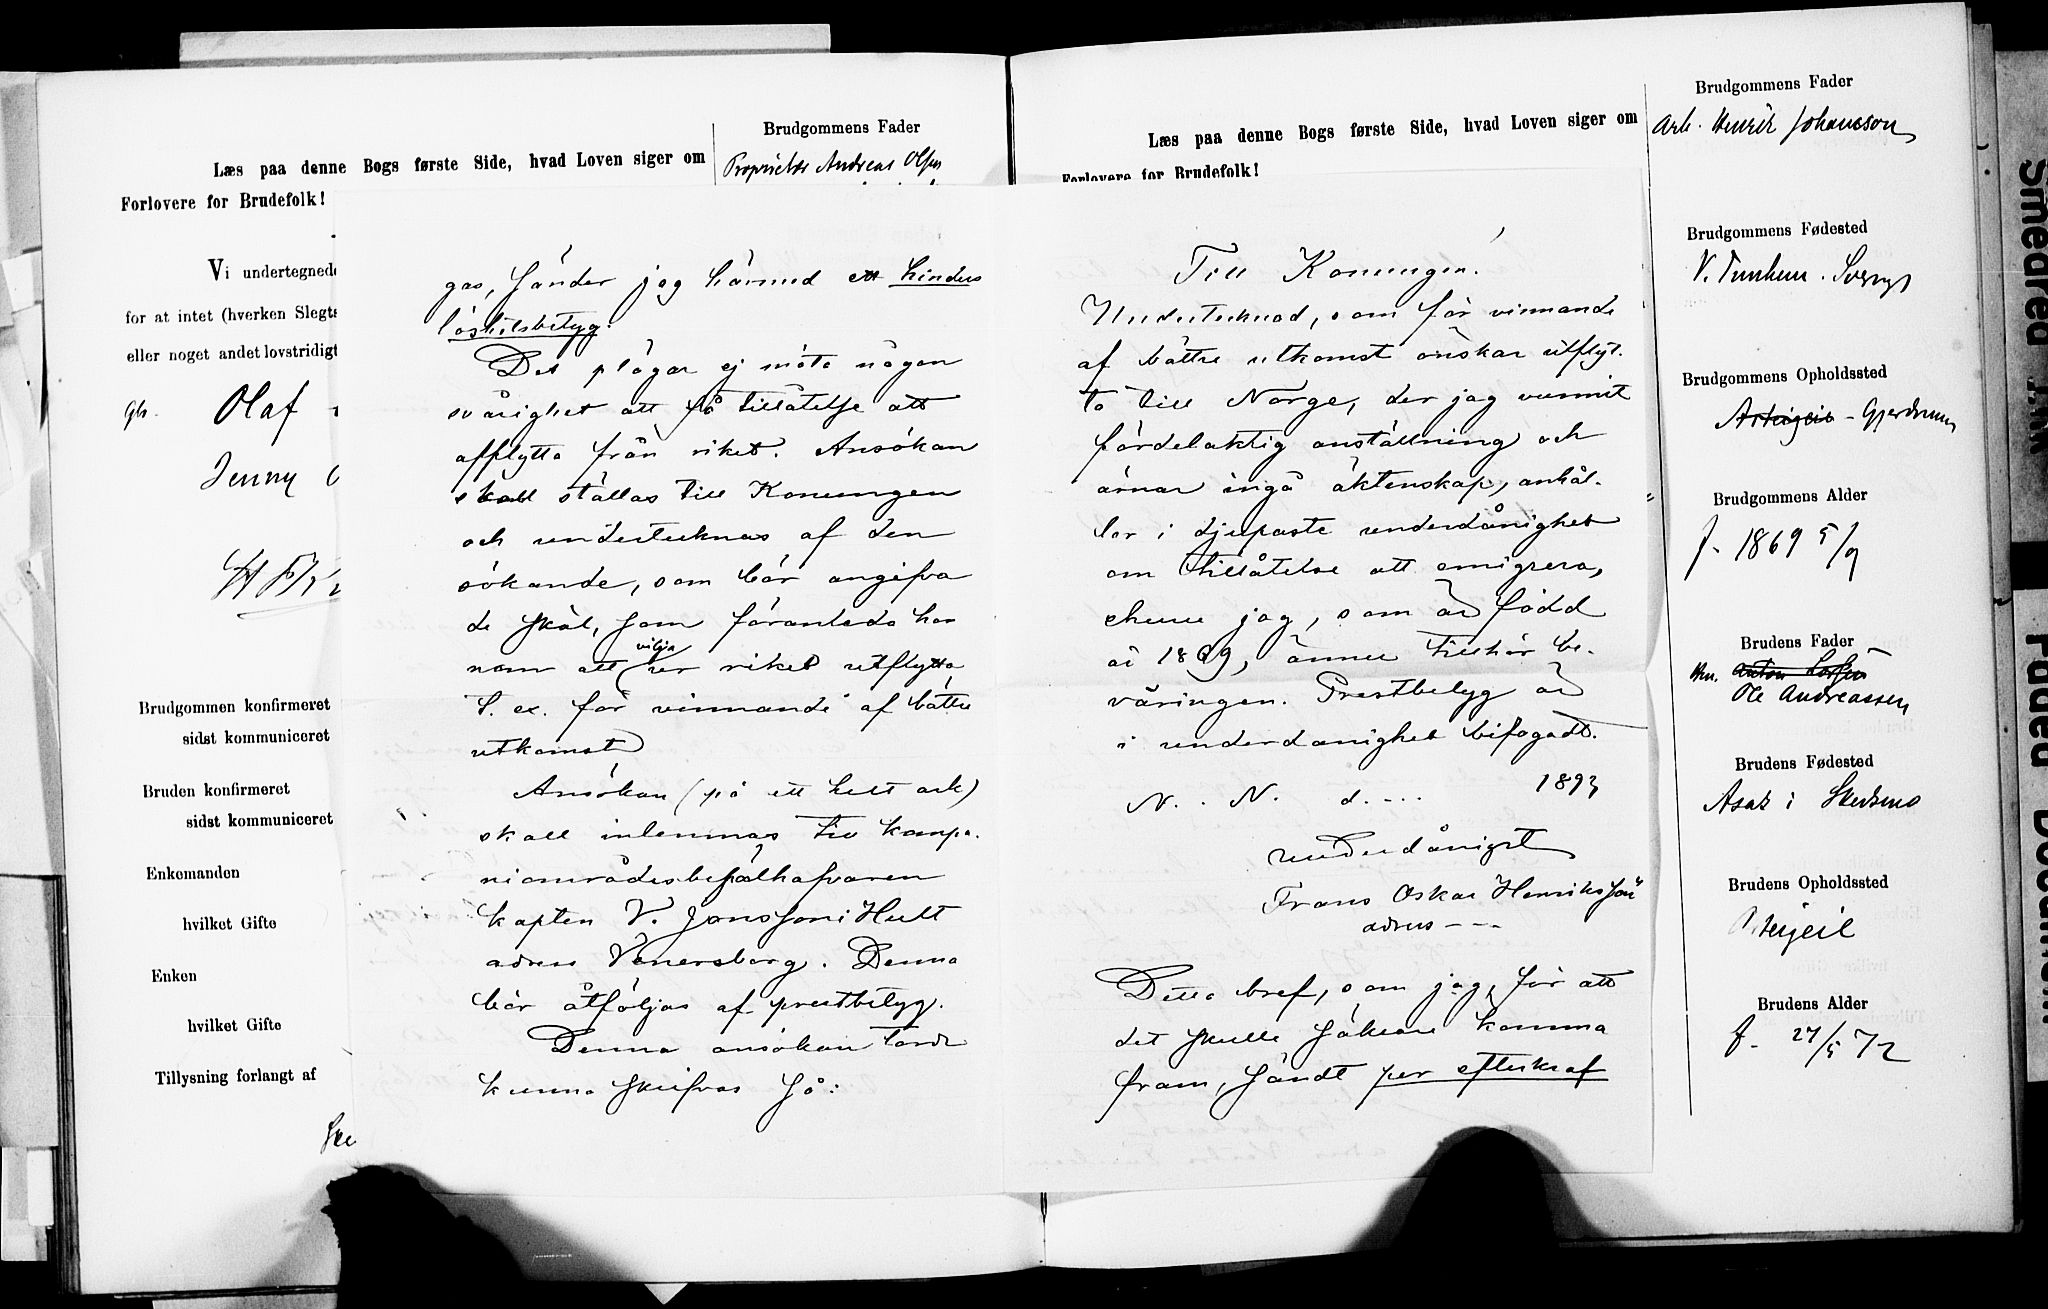 Brudgommens Fader
Læs paa denne Bogs første Side, hvad Loven siger om
Proprietær Andreas Olsen
Forlovere for Brudefolk!
Vi undertegnede
for at intet (hverken Slegts
eller noget andet lovstridigt
gb. Olaf
Jenny
Brudgommen konfirmeret
sidst kommuniceret
Bruden konfirmeret
sidst kommuniceret
Enkemanden
hvilket Gifte
Enken
hvilket Gifte
Tillysning forlangt af
Ske
gas, sänder jag härmed ett hinders
löshetsbetyg.
Det plägar ej möta någon
svårighet att få tillåtelse att
afflytta från riket. Ansökan
skall ställas till Konungen
och undertecknas af den
sökande, som bör angifva
de skäl, som föranleda ho
nom att vilja ur riket utflytta
t. ex. för vinnande af bättre
utkomst
Ansökan (på ett helt ark)
skall inlemnas till kompa-
niområdesbefälhafvaren
kapten V. Jonsson i Hult
adress Venersborg. Denna
bör åtföljas af prestbetyg.
Denna ansökan torde
kunna skrifvas så:
Læs paa denne Bogs første Side, hvad Loven siger om
Forlovere for Brudefolk!
Till Konungen!
Undertecknad, som för vinnande
af bättre utkomst önskar utflyt-
ta till Norge, der jag vunnit
fördelaktig anställning och
ärnar ingå äktenskap, anhål-
ler i djupaste underdånighet
om tillåtelse att emigrera,
ehuru jag, som är född
år 1869, ännu tillhör be-
väringen. Prestbetyg är
i underdånighet bifogadt.
N. N. d. ... 1893
underdånigst
Frans Oskar Henriksson
adress - - -
Detta bref, som jag, för att
det skulle säkrare komma
fram, sändt per efterkraf
Brudgommens Fader
Arb. Henrik Johansson
Brudgommens Fødested
V. Tunhem. Sverige
Brudgommens Opholdssted
Asteigeie - Gjerdrum
Brudgommens Alder
f. 1869 5/9
Brudens Fader
Anton Larsen
Ole Andreassen
Brudens Fødested
Asak i Skedsmo
Brudens Opholdssted
Brudens Alder
f. 27/5 72
Smedred TARK
Faded Document